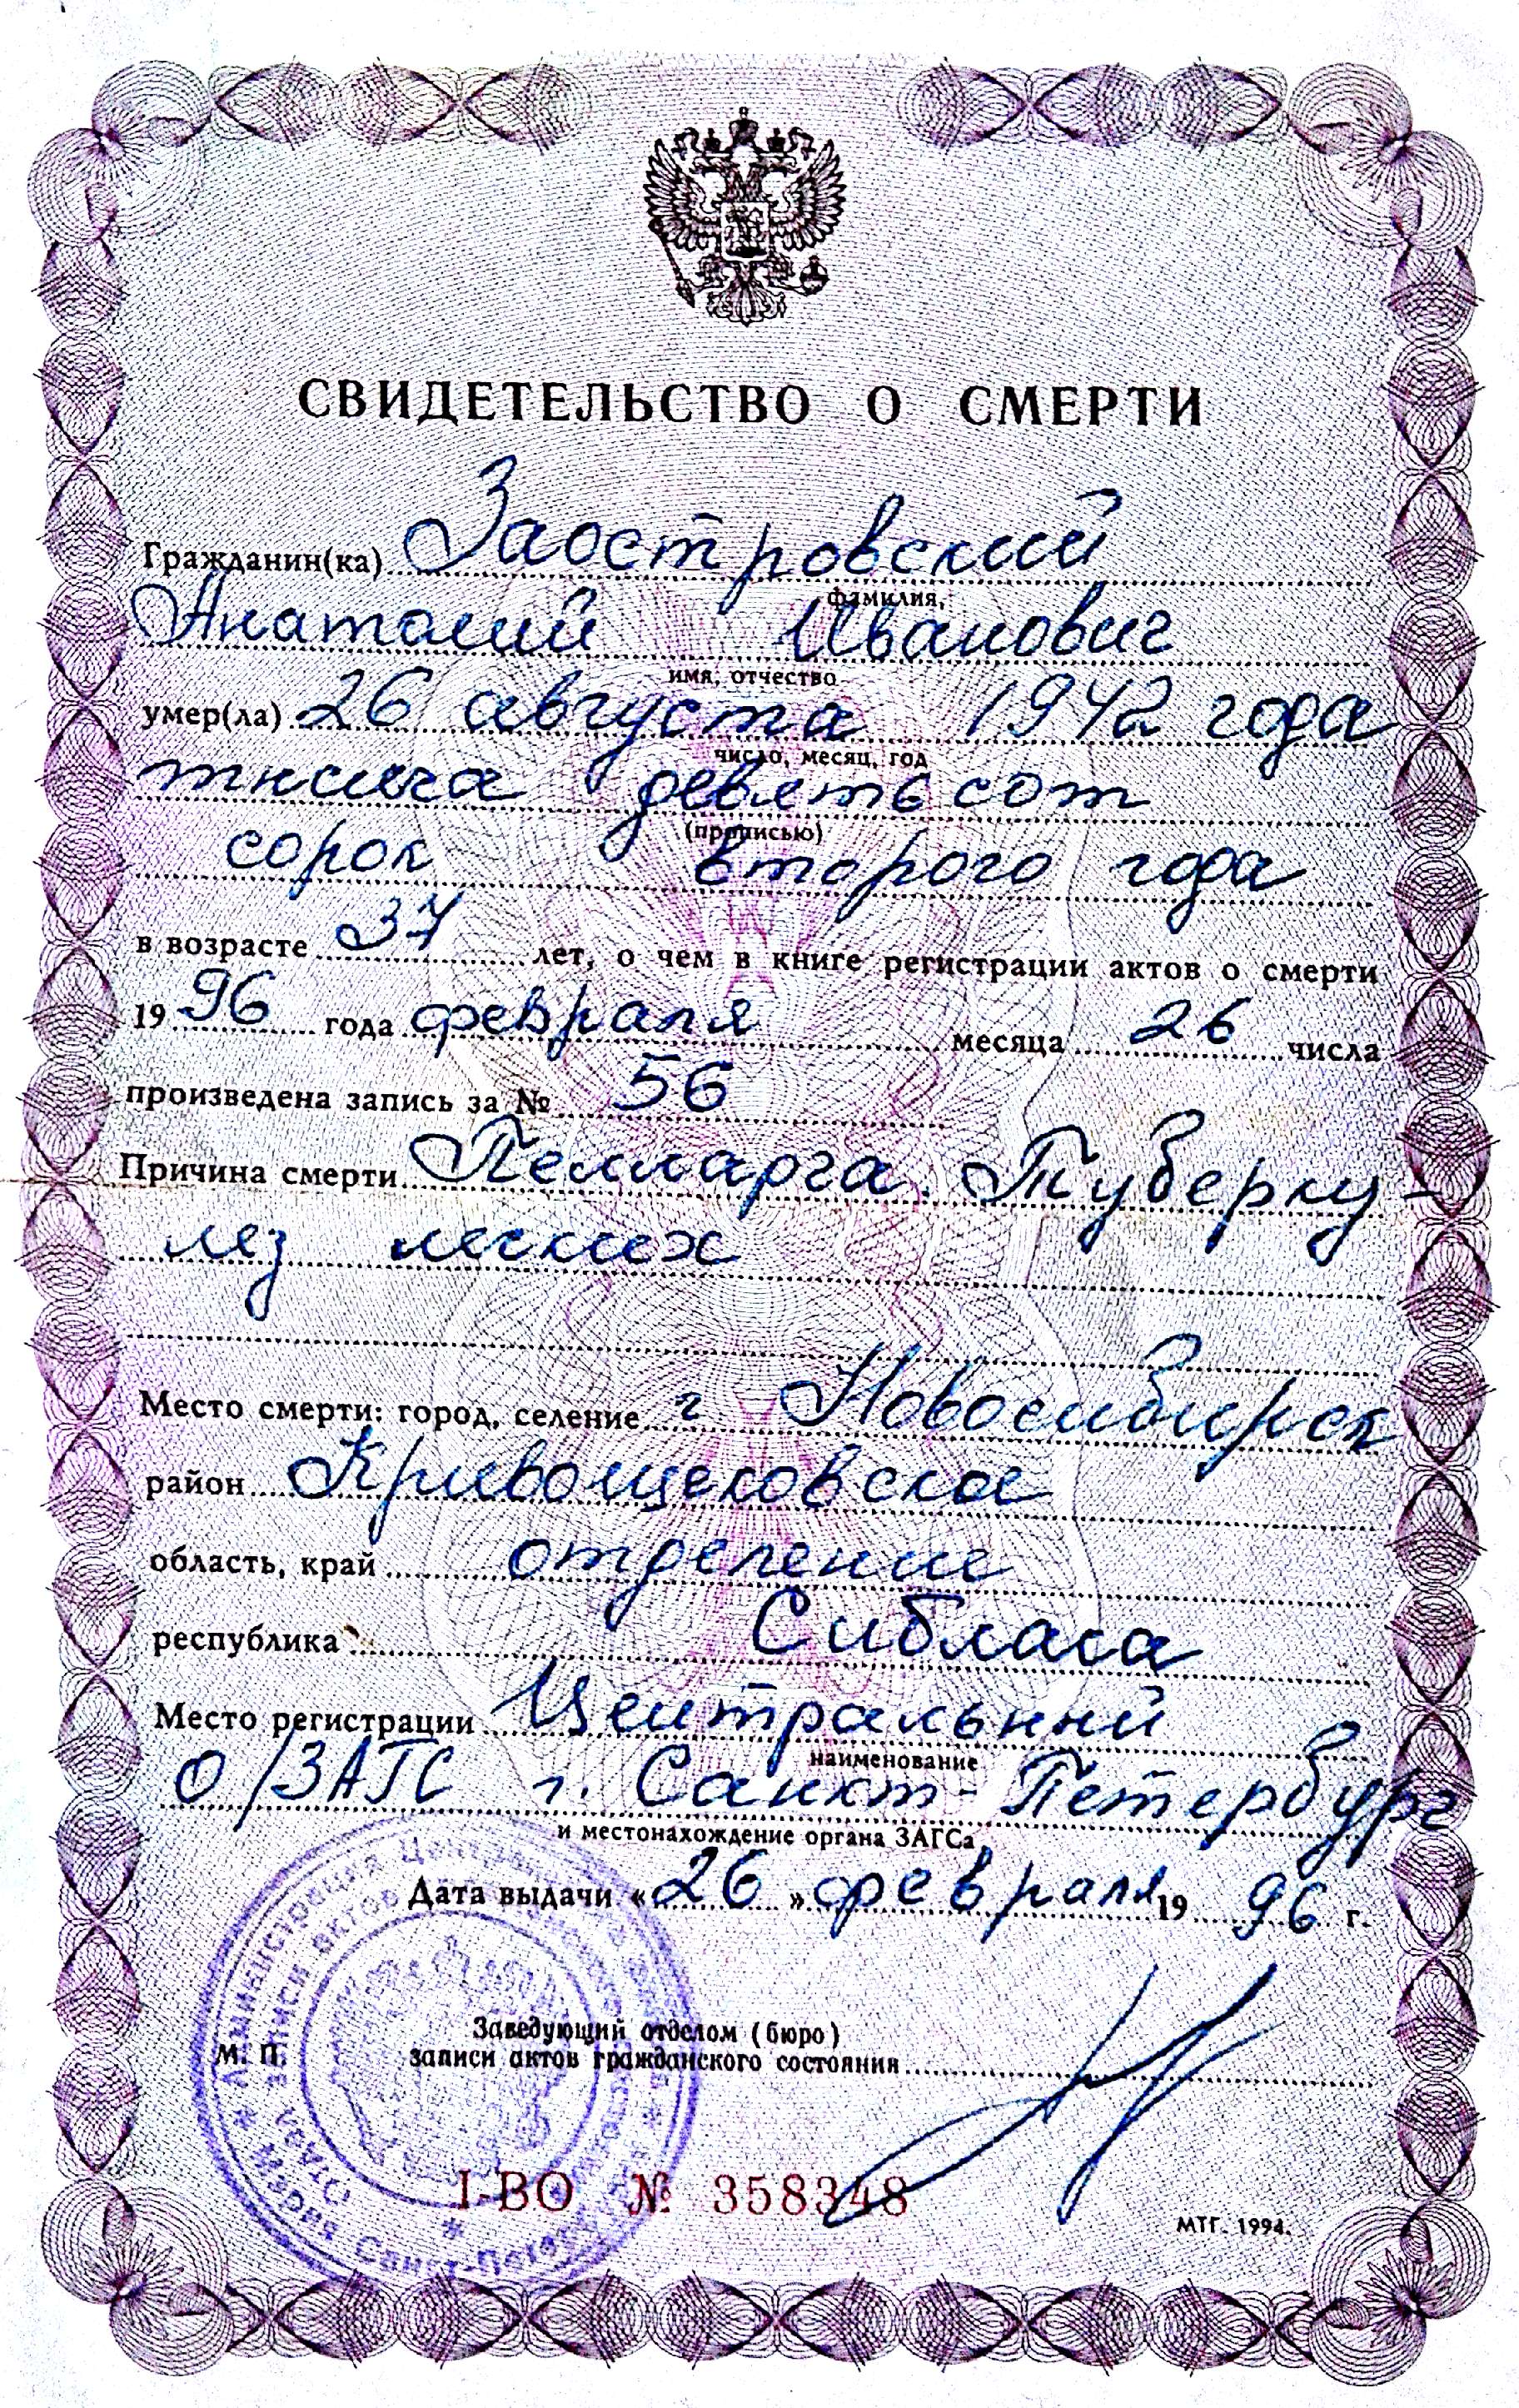 СВИДЕТЕЛЬСТВО О СМЕРТИ
Гражданин(ка) Заостровский
фамилия,
Анатолий Иванович
имя, отчество
умер(ла) 26 августа 1942 года
число, месяц, год
тысяча девятьсот
(прописью)
сорок второго года
в возрасте 37 лет, о чем в книге регистрации актов о смерти
19 96 года февраля месяца 26 числа
произведена запись за № 56
Причина смерти Пелларга. Туберку-
лез легких
Место смерти: город, селение г Новосибирск
район Кривощековское
область, край отделение
республика Сиблага
Место регистрации Центральный
наименование
О/ЗАГС г. Санкт-Петербург
и местонахождение органа ЗАГСа
Дата выдачи «26» февраля 19 96 г.
Заведующий отделом (бюро)
М. П. записи актов гражданского состояния
I-ВО № 358348
МТГ. 1994.
Администрация Централь
записи актов
Отдел
Мэрия Санкт-Петербурга